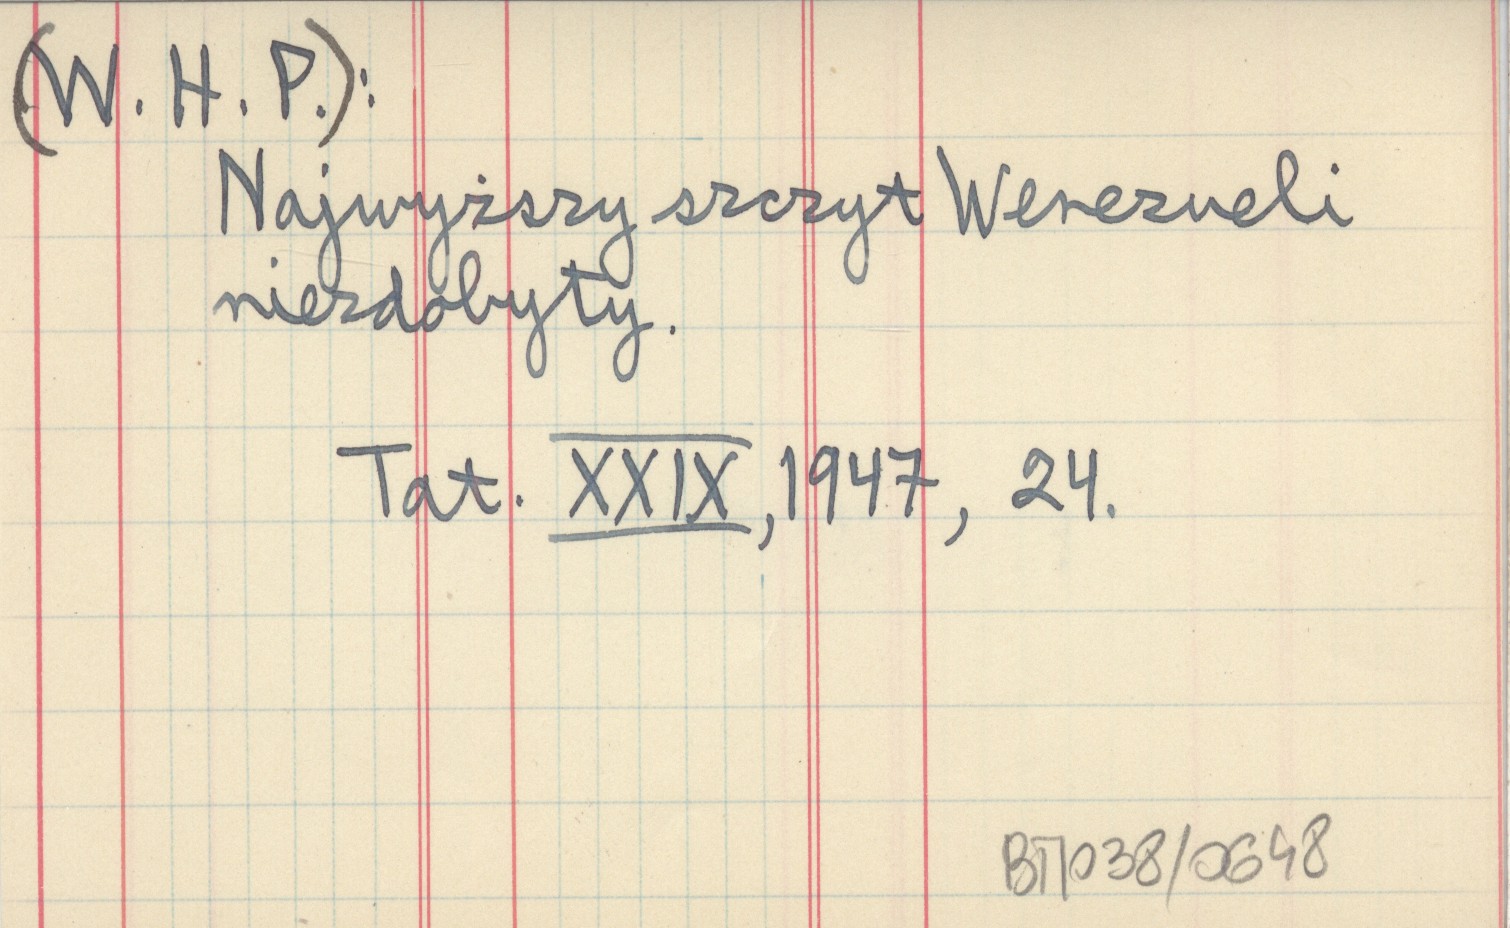 (W. H. P.):
Najwyższy szczyt Wenezueli
niezdobyty.
Tat. XXIX, 1947, 24.
ВП038/0648